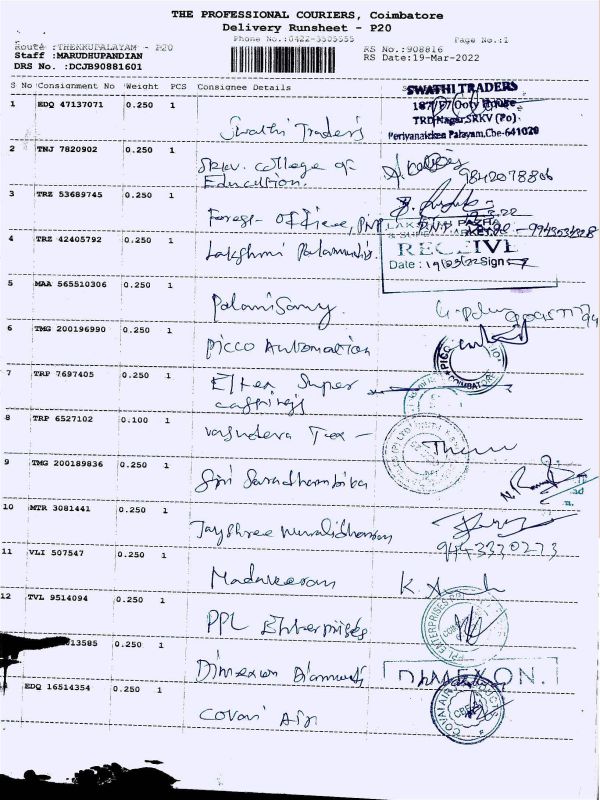 THE PROFESSIONAL COURIERS, Coimbatore
Delivery Runsheet - P20
Phone No.:0422-3505555 Page No.:1
Route :THEKKUPALAYAM - P20 RS No.:908816
Staff :MARUDHUPANDIAN RS Date:19-Mar-2022
DRS No. :DCJB90881601
S No Consignment No Weight PCS Consignee Details
SWATHI TRADERS
1 EDQ 47137071 0.250 1
187/ Ooty
TRD Nagar, SRKV (Po)
Swathi Traders
Periyanaicken Palayam, Cbe-641020
2 TNJ 7820902 0.250 1
SRKV. College of
Education.
9842078806
3 TRZ 53689745 0.250 1
Forest office, PNP
4 TRZ 42405792 0.250 1
Lakshmi
RECEIVE
Date : 19/03/22 Sign
5 MAA 565510306 0.250 1
PalaniSamy.
6 TMG 200196990 0.250 1
PICCO Automation
PICCO
COIMBATORE
7 TRP 7697405 0.250 1
Elten Super
castings
8 TRP 6527102 0.100 1
Vasudeva Tex -
9 TMG 200189836 0.250 1
Sri Saradhambika
10 MTR 3081441 0.250 1
Jayshree Muralidharan
9443330273
11 VLI 507547 0.250 1
Madaveeran
12 TVL 9514094 0.250 1
PPL Enterprises
PPL ENTERPRISES
13585 0.250 1
Dimexon Diamonds
DIMEXON.
EDQ 16514354 0.250 1
Covai Air
COVAI AIR PRODUCTS